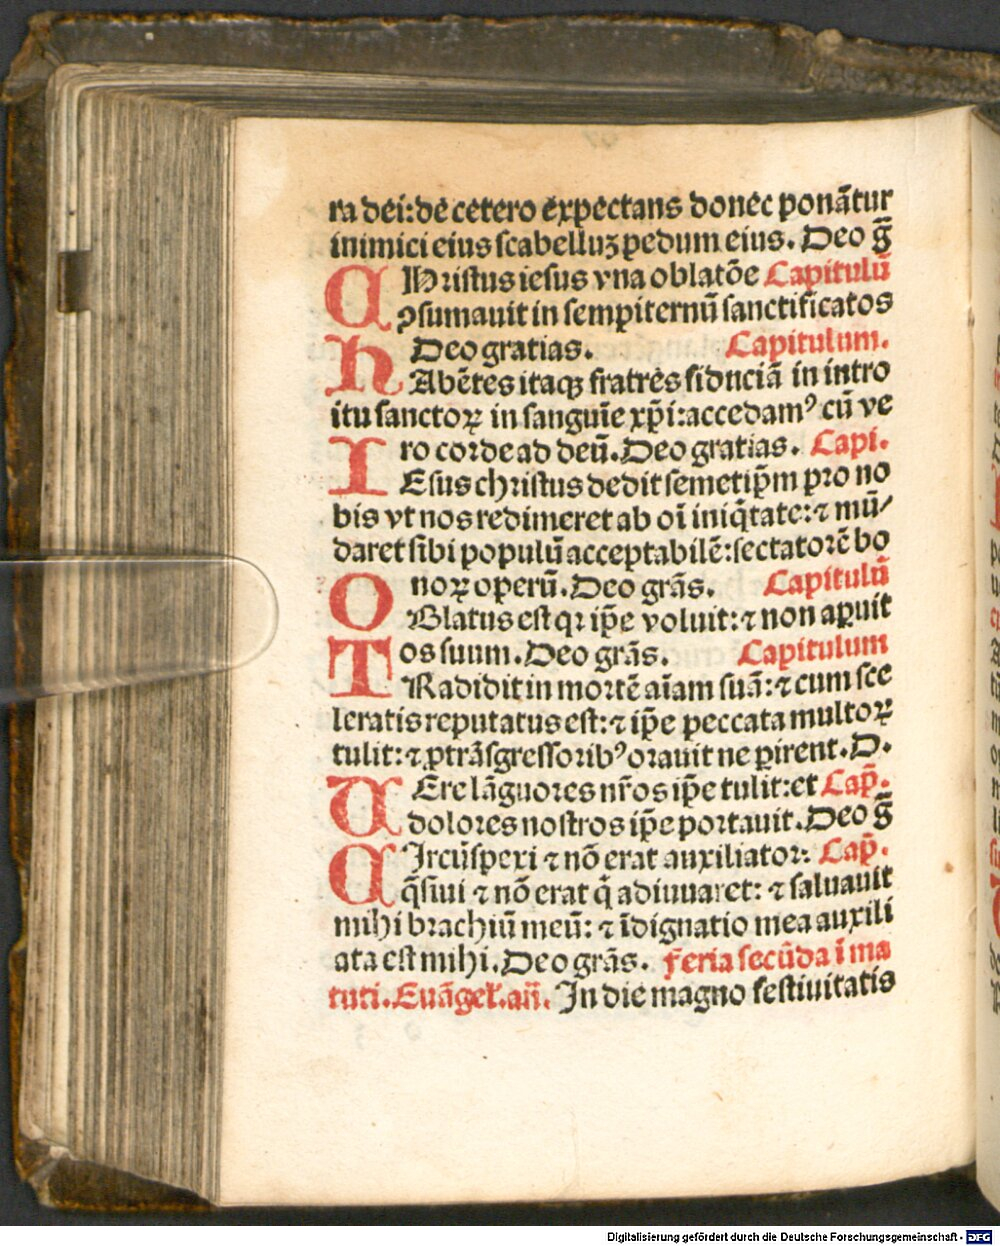 ra dei: de cetero expectans donec ponãtur
inimici eius scabelluꝫ pedum eius. Deo g̃
CHristus iesus vna oblatõe Capitulũ
ꝯsumauit in sempiternũ sanctificatos
Deo gratias. Capitulum.
HAbẽtes itaqꝫ fratres fiduciã in intro
itu sanctoꝝ in sanguĩe xp̃i: accedamꝰ cũ ve
ro corde ad deũ. Deo gratias. Capi.
IEsus christus dedit semetip̃m pro no
bis vt nos redimeret ab oĩ iniq̃tate: ⁊ mũ/
daret sibi populũ acceptabilẽ: sectatorẽ bo
noꝝ operũ. Deo grãs. Capitulũ
OBlatus est qꝛ ip̃e voluit: ⁊ non aꝑuit
os suum. Deo grãs. Capitulum
TRadidit in mortẽ aĩam suã: ⁊ cum sce
leratis reputatus est: ⁊ ip̃e peccata multoꝝ
tulit: ⁊ ꝓ trãsgressoribꝰ orauit ne ꝑirent. D.
UEre lãguores nr̃os ip̃e tulit: et Cap̃.
dolores nostros ip̃e portauit. Deo g̃
CIrcũspexi ⁊ nõ erat auxiliator: Cap̃.
q̃siui ⁊ nõ erat q̃ adiuuaret: ⁊ saluauit
mihi brachiũ meũ: ⁊ ĩdignatio mea auxili
ata est mihi. Deo grãs. Feria secũda ĩ ma
tuti. Euãgeł. añ. In die magno festiuitatis
Digitalisierung gefördert durch die Deutsche Forschungsgemeinschaft - DFG